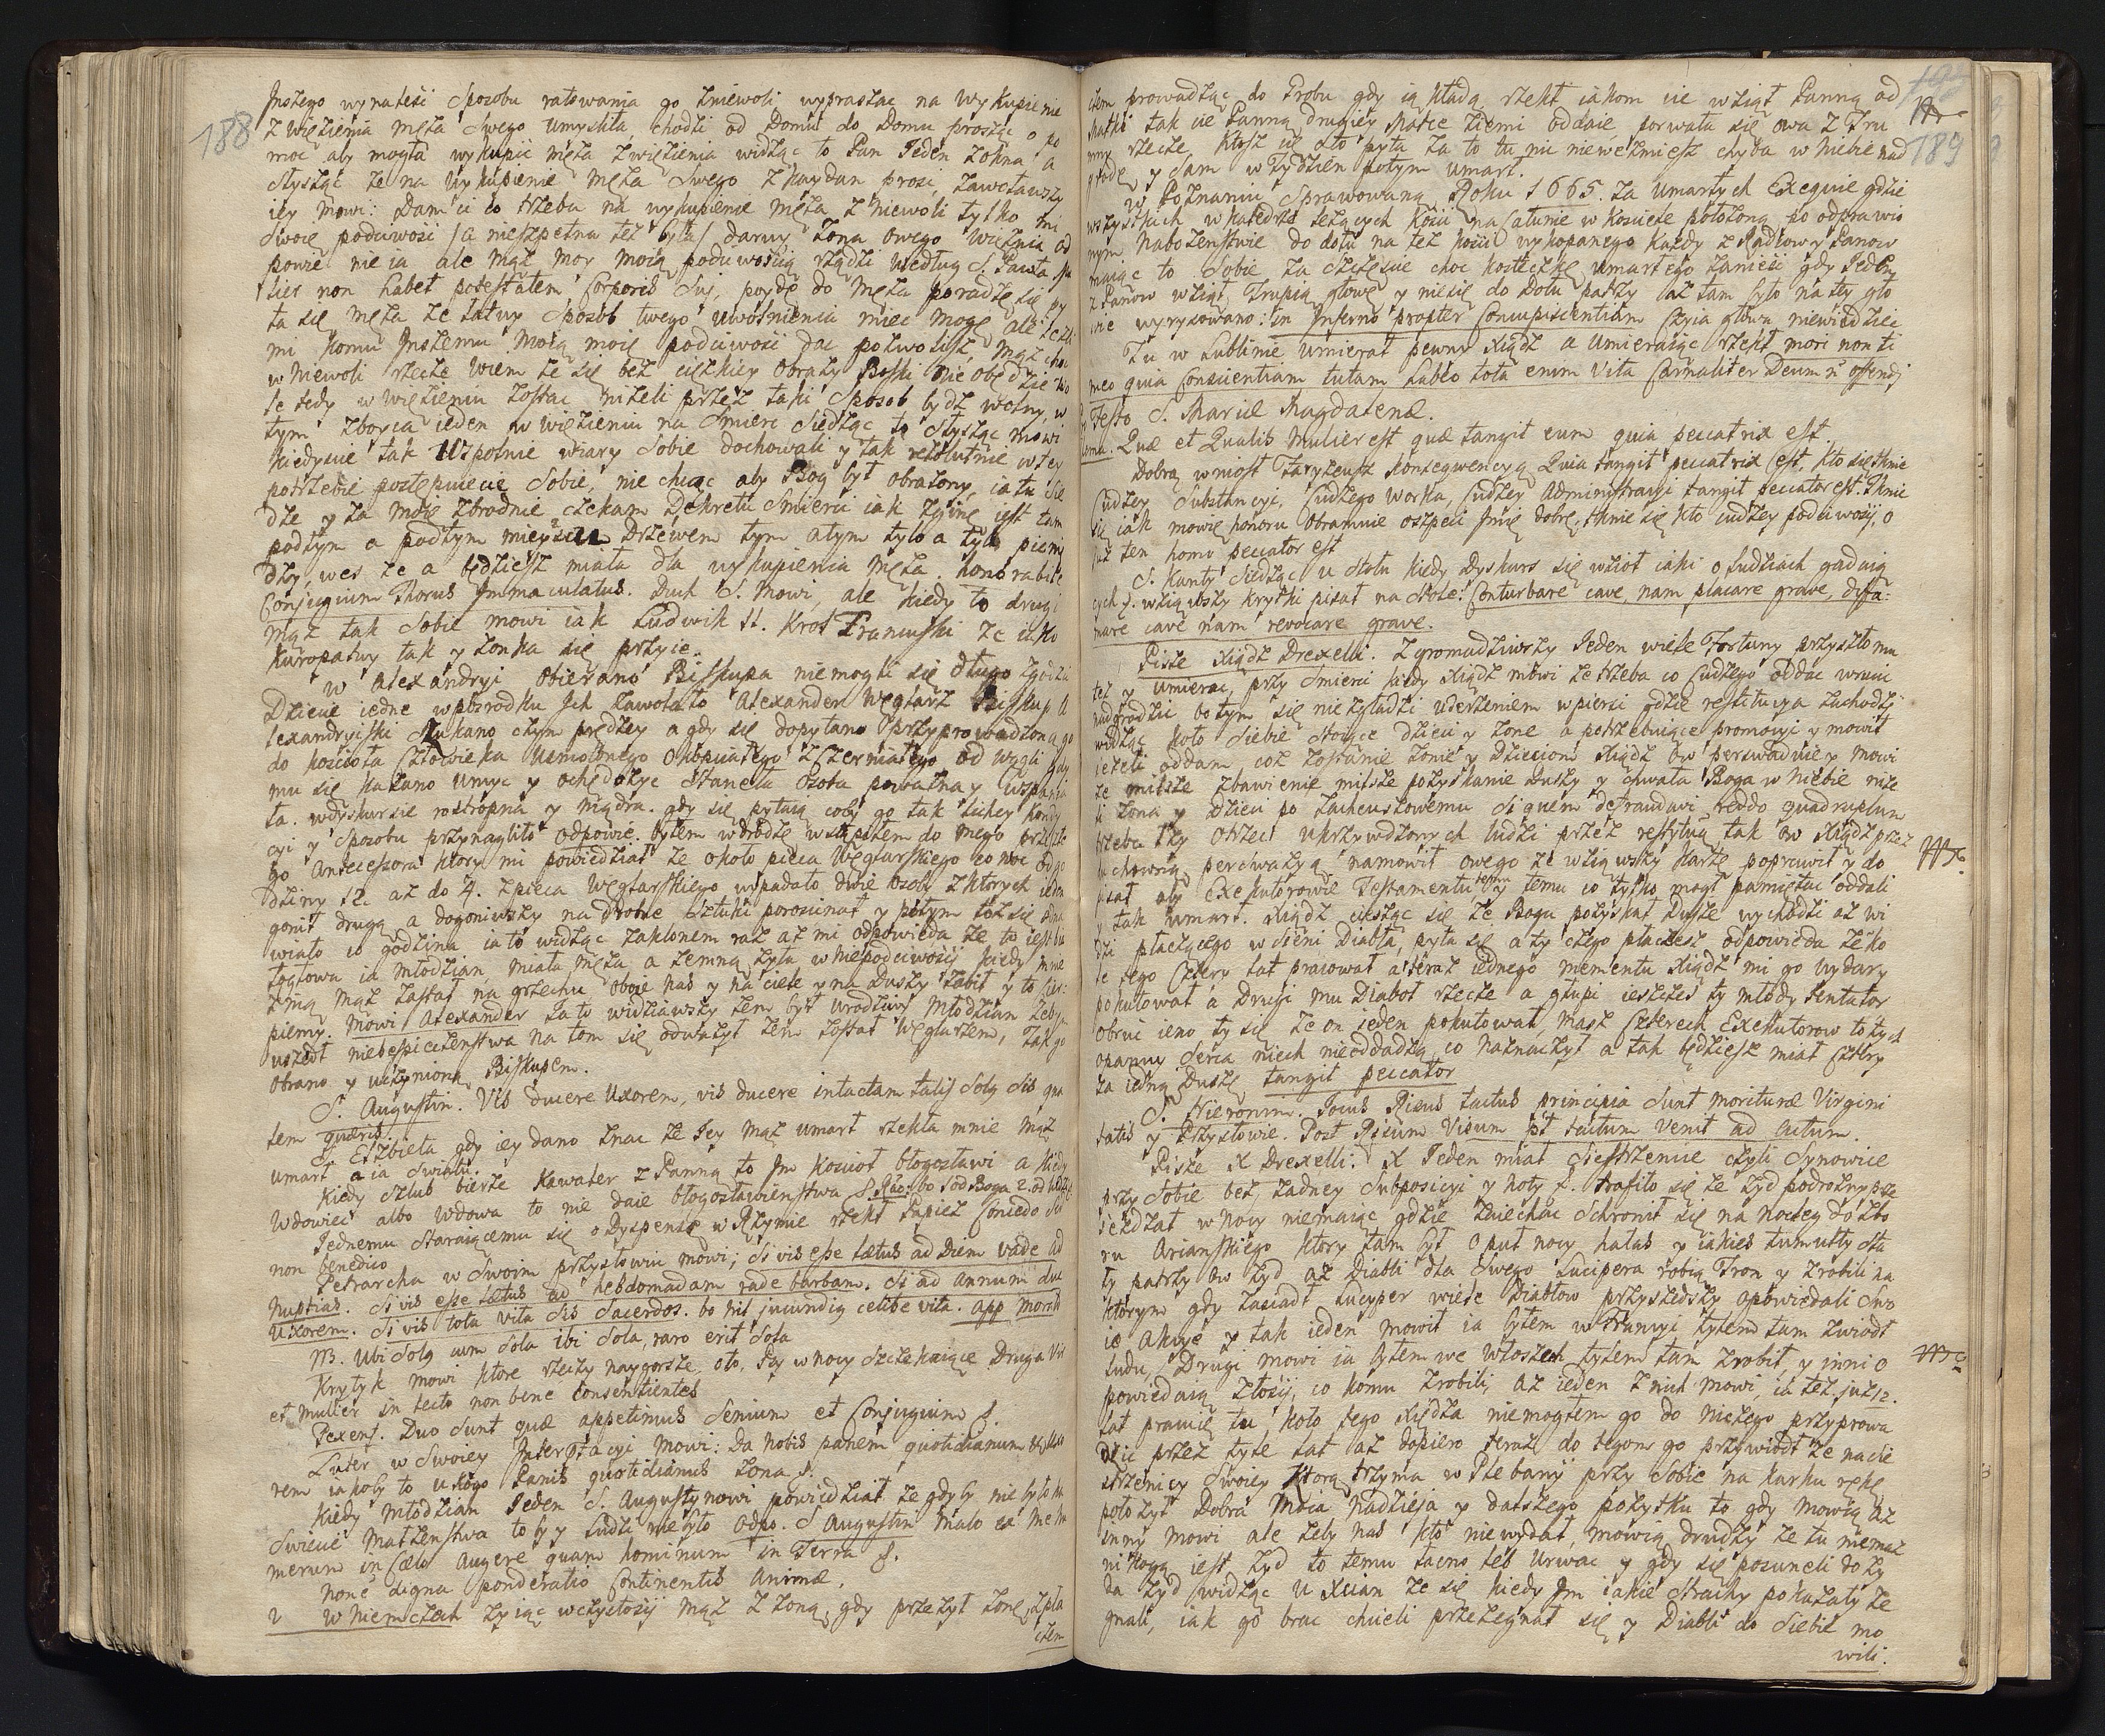 188
Inszego wynaleść Sposobu ratowania go zniewoli, wypraszac na wykupienie
z więzienia męża Swego umyśliła, chodzi od Domu do Domu prosząc o po
moc aby mogła wykupic męża zwięzienia widząc to Pan Jeden zokna a
słysząc że na wykupienie męża Swego z kaydan prosi, zawoławszy
iey mowi: Dam ci co trzeba na wykupienie męża z niewoli tylko mi
Swoię poduwosi (a nieszpetna też była) daruy żona owego więźnia od
powie nie ia ale mąż moy moią poduwością rządzi według S. Pawła Mu
lier non habet potestatem Corporis Sui, poydę do męża poradzę się py
ta się męża że łatwy Sposob twego uwolnienia miec mogę ale ieżli
mi komu Inszemu moią moię poduwosi dac pozwolisz, mąż choc
w niewoli rzecze wiem że się bez ciężkiey obrazy Boski nie obędzie wo
lę tedy w więzieniu zostac niżeli przez taki Sposob bydz wolny, w
tym zboyca ieden w więzieniu na Smierc Siedząc to słysząc mowi
kiedyscie tak Wspolnie wiary Sobie dochowali y tak rezolutnie w tey
potrzebie postępuiecie Sobie, nie chcąc aby Bog był obrażony, ia tu Sie
dzę y za moię zbrodnie czekam Dekretu Smierci iak zginę iest tam
podtym a podtym mieyscu Drzewem tym atym tylo a tylo pienię
dzy, weź że a będziesz miała dla wykupienia męża. honorabile
Conjugium Thorus Immaculatus. Duch S. mowi, ale kiedy to drugi
mąż tak Sobie mowi iak Ludwik 11. Krol Francuski że iako
kuropatwy tak y żonka się przyie.
w Alexandryi Obierano Biskupa niemogli się długo zgodzic
Dziecie iedne wposrodku Ich zawołało Alexander Węglarz Biskup A
lexandryiski Szukano czym prędzey a gdy się dopytano przyprowadzono go
do kościoła człowieka Usmolonego okopciałego zczerniałego od węgli gdy
mu się kazano umyc y ochędożyc stanęła Osoba poważna y wspania
ła. wdyskursie rostropna y mądra. gdy się pytaią coby go tak lichey kondy
cyi y Sposobu przynagliło odpowie. byłem wdrodze wstąpiłem do mego przeszłe
go Antecessora ktory mi powiedział że około pieca Węglarskiego co noc od go
dziny 12. aż do 4. zpieca węglarskiego wypadało dwie osoby z ktorych iedna
gonił drugą a dogoniwszy na drobne sztuki porocinał y potym toż się odna
wiało co godzina ia to widząc zaklonem raz aż mi odpowieda że to iest bia
łogłowa ia młodzian miała męża a zemną żyła w niepoduwosiy kiedy mnie
z nią mąż zastał na grzechu oboie nas y na ciele y na Duszy zabił y to cier:
piemy. Mowi Alexander Ia to widziawszy żem był urodziwy młodzian żebym
uszedł niebespieczeństwa na tom się odważył żem został Węglarzem, Tak go
obrano y uczyniono Biskupem.
S. Augustin. Vis ducere Uxorem, vis ducere intactam talis Solq Sis qua
lem quæris.
S. Elżbieta gdy iey dano znac że Jey mąż umarł rzekła mnie mąż
umarł a ia Swiatu.
Kiedy szlub bierze Kawaler z Panną to Im kosciol błogosławi a kiedy
Wdowiec albo Wdowa to nie daie błogosławienstwa S. Rac: bo 1 od Boga 2. od ludzi.
Jednemu staraiącemu się o Dyspensę w Rzymie rzekł Papież Concedo Sed
non benedico
Petrarcha w Swoim przysłowiu mowi; Si vis esse lætus ad Diem vade ad
nuptias. Si vis esse lætus ad hebdomadam rade barbam. Si ad annum duc
Uxorem. Si vis tota vita Sis Sacerdos. bo nil jucundiq celibe vita. app Morch
NB. Ubi Solq cum Sola ibi Sola, raro erit Sola
Krytyk mowi ktore rzeczy naygorsze, oto, Psy w nocy szczekaiące Druga Vir
et mulier in lecto non bene consentientes
Texens. Duo Sunt quæ appetimus Senium et Conjugium S.
Luter w Swoiey Interptacyi mowi: Da nobis panem quotidianum
rem iakoby to u kogo Panis quotidianus żona S.
Kiedy młodzian Jeden S. Augustynowi powiedział że gdyby nie było na
Swiecie małżenstwa toby y ludzi nie było odpo. S Augustin Malo ea me nu
merum in Cælo augere quam hominum in Terra S.
none digna ponderatio Continentis Animæ.
w Niemczech żyiąc wczystosiy mąż z żoną, gdy przeżył żonę, zpła
czem
189
czem prowadząc do Grobu gdy ią kładą rzekł iakom cie wziął Panną od
Matki tak cie Panną drugiey Matce ziemi oddaię, porwała się owa z Tru
nny rzecze Ktoż cię oto pyta za to tu nic nieweźmiesz chyba w Niebie nad
grodę y Sam w Tydzien potym umarł.
w Poznaniu Sprawowano Roku 1665. za umarłych Exequie gdzie
wszystkich w katedrze leżących kości na Catunie w kosciele położono po odprawio
nym nabożenstwie do dołu na też kości wykopanego każdy z Radcow y Panow
maiąc to Sobie za szczęscie choc kosteczkę umarłego zaniesc gdy Jeden
z Panow wziął Trupią głowę y niesie do Dołu patrzy aż tam było na tey gło
wie wyrysowano: in Inferno propter Concupiscentiam Czyia głowa niewiedziec
Tu w Lublinie umierał pewny xiądz a Umieraiąc rzekł mori non ti
meo quia Conscientiam tutam habeo tota enim Vita Carnaliter Deum n offendj
Festo S. Mariæ Magdalenæ.
Quæ et Qualis mulier est quæ tangit eum quia peccatrix est.
Dobrą wniosł Faryzeusz konsequencyą Quia tangit peccatrix est, kto się tknie
Cudzey Substancyi, Cudzego worka, Cudzey Administracyi tangit peccator est. Tknie
się iak mowię honoru obramnie oszpeci Imię dobre, tknie się kto cudzey poduwosij, o
już ten homo peccator est
S. Kanty Siedząc u stołu kiedy Dyskurs się wzioł iaki o ludziach gadaią
cych S. wziąwszy krytki pisał na stole: Conturbare cave, nam placare grave, diffa:
mare cave nam revocare grave.
Pisze xiądz Drexelli. Zgromadziwszy Jeden wiele Fortuny przyszło mu
też y umierac, przy Smierci kiedy xiądz mowi że trzeba co Cudzego oddac wrocic
nadgrodzic bo tym się niezgładzi uderzeniem wpiersi gdzie restitucya zachodzi
widząc koło Siebie stoiące dzieci y żone a potrzebuiące promocyi y mowił
ieżeli oddam, coż zostanie żonie y Dzieciom xiądz ow perswaduie y mowi
że milsze zbawienie milsze pozyskanie duszy y chwała Boga w Niebie niże
li żona y dzieci po Zacheuszowemu Si quem defraudavi reddo quadruplum
trzeba łzy otrzec ukrzywdzonych ludzi przez restytucyą tak ow xiądz przez
duchowną perswazyą namowił owego że wziąwszy kartę poprawił y do
pisał aby Exekutorowie Testamentu temu y temu co tylko mogł pamiętac oddali
y tak umarł. xiądz ciesząc się że Bogu pozyskał Duszę wychodzi aż wi
dzi płaczącego w sieni Diabła, pyta się a ty czego płaczesz odpowieda żeko
ło tego Cztery lat pracował a teraz iednego mementu xiądz mi go wydarł
pokutował a Drugi mu Diabol rzecze a głupi ieszczes ty młody tentator
obroć ieno ty się że on ieden pokutował, masz Czterech Exekutorow to tych
opanuy serca niech nieoddadzą co naznaczył a tak będziesz miał Cztery
za iedną Duszę tangit peccator
S. Hieronim. Jocus Risus tactus principia Sunt morituræ Virgini
tatis y Przysłowie. Post Risum Visum pt tactum venit ad actum.
Pisze X Drexelli. X Jeden miał Siestrzenice czyli Synowice
przy Sobie bez żadney Susposicyi y noty S. trafiło się że żyd podrożny prze
jeżdżał w nocy niemaiąc gdzie zaiechac Schronił się na nocleg do zbo
ru Arianskiego ktory tam był, o puł nocy hałas y iakies tumulty sta
ły patrzy ow żyd aż Diabli dla Swego Lucipera robią Tron y zrobili na
ktorym gdy zasiadł Lucyper wiele Diabłow przyszedszy opowiedali Swo
ie akcye y tak ieden mowił ia byłem w Francyi tylem tam zwiodł
ludu, Drugi mowi ia byłem we Włoszech tylem tam zrobił, y inni o
powiedaią złosij, co komu zrobili, aż ieden z nich mowi, ia też już 12.
lat pracuię tu koło tego xiędza niemogłem go do niczego przyprowa
dzic przez tyle lat aż dopiero teraz do tegom go przywiodł że na sie
strzenicy Swoiey ktorą trzyma w Plebanij przy Sobie na karku rękę
położył Dobra moia nadzieja y dalszego pożytku to gdy mowią aż
inny mowi ale żeby nas kto niewydał, mowią drudzy że tu niemasz
nikogo iest żyd to temu łacno łeb urwac y gdy się posuneli do ży
da żyd widząc u Xcian że się kiedy Im iakie strachy pokazały że
gnali, iak go brac chcieli przeżegnał się y Diabli do Siebie mo
wili.